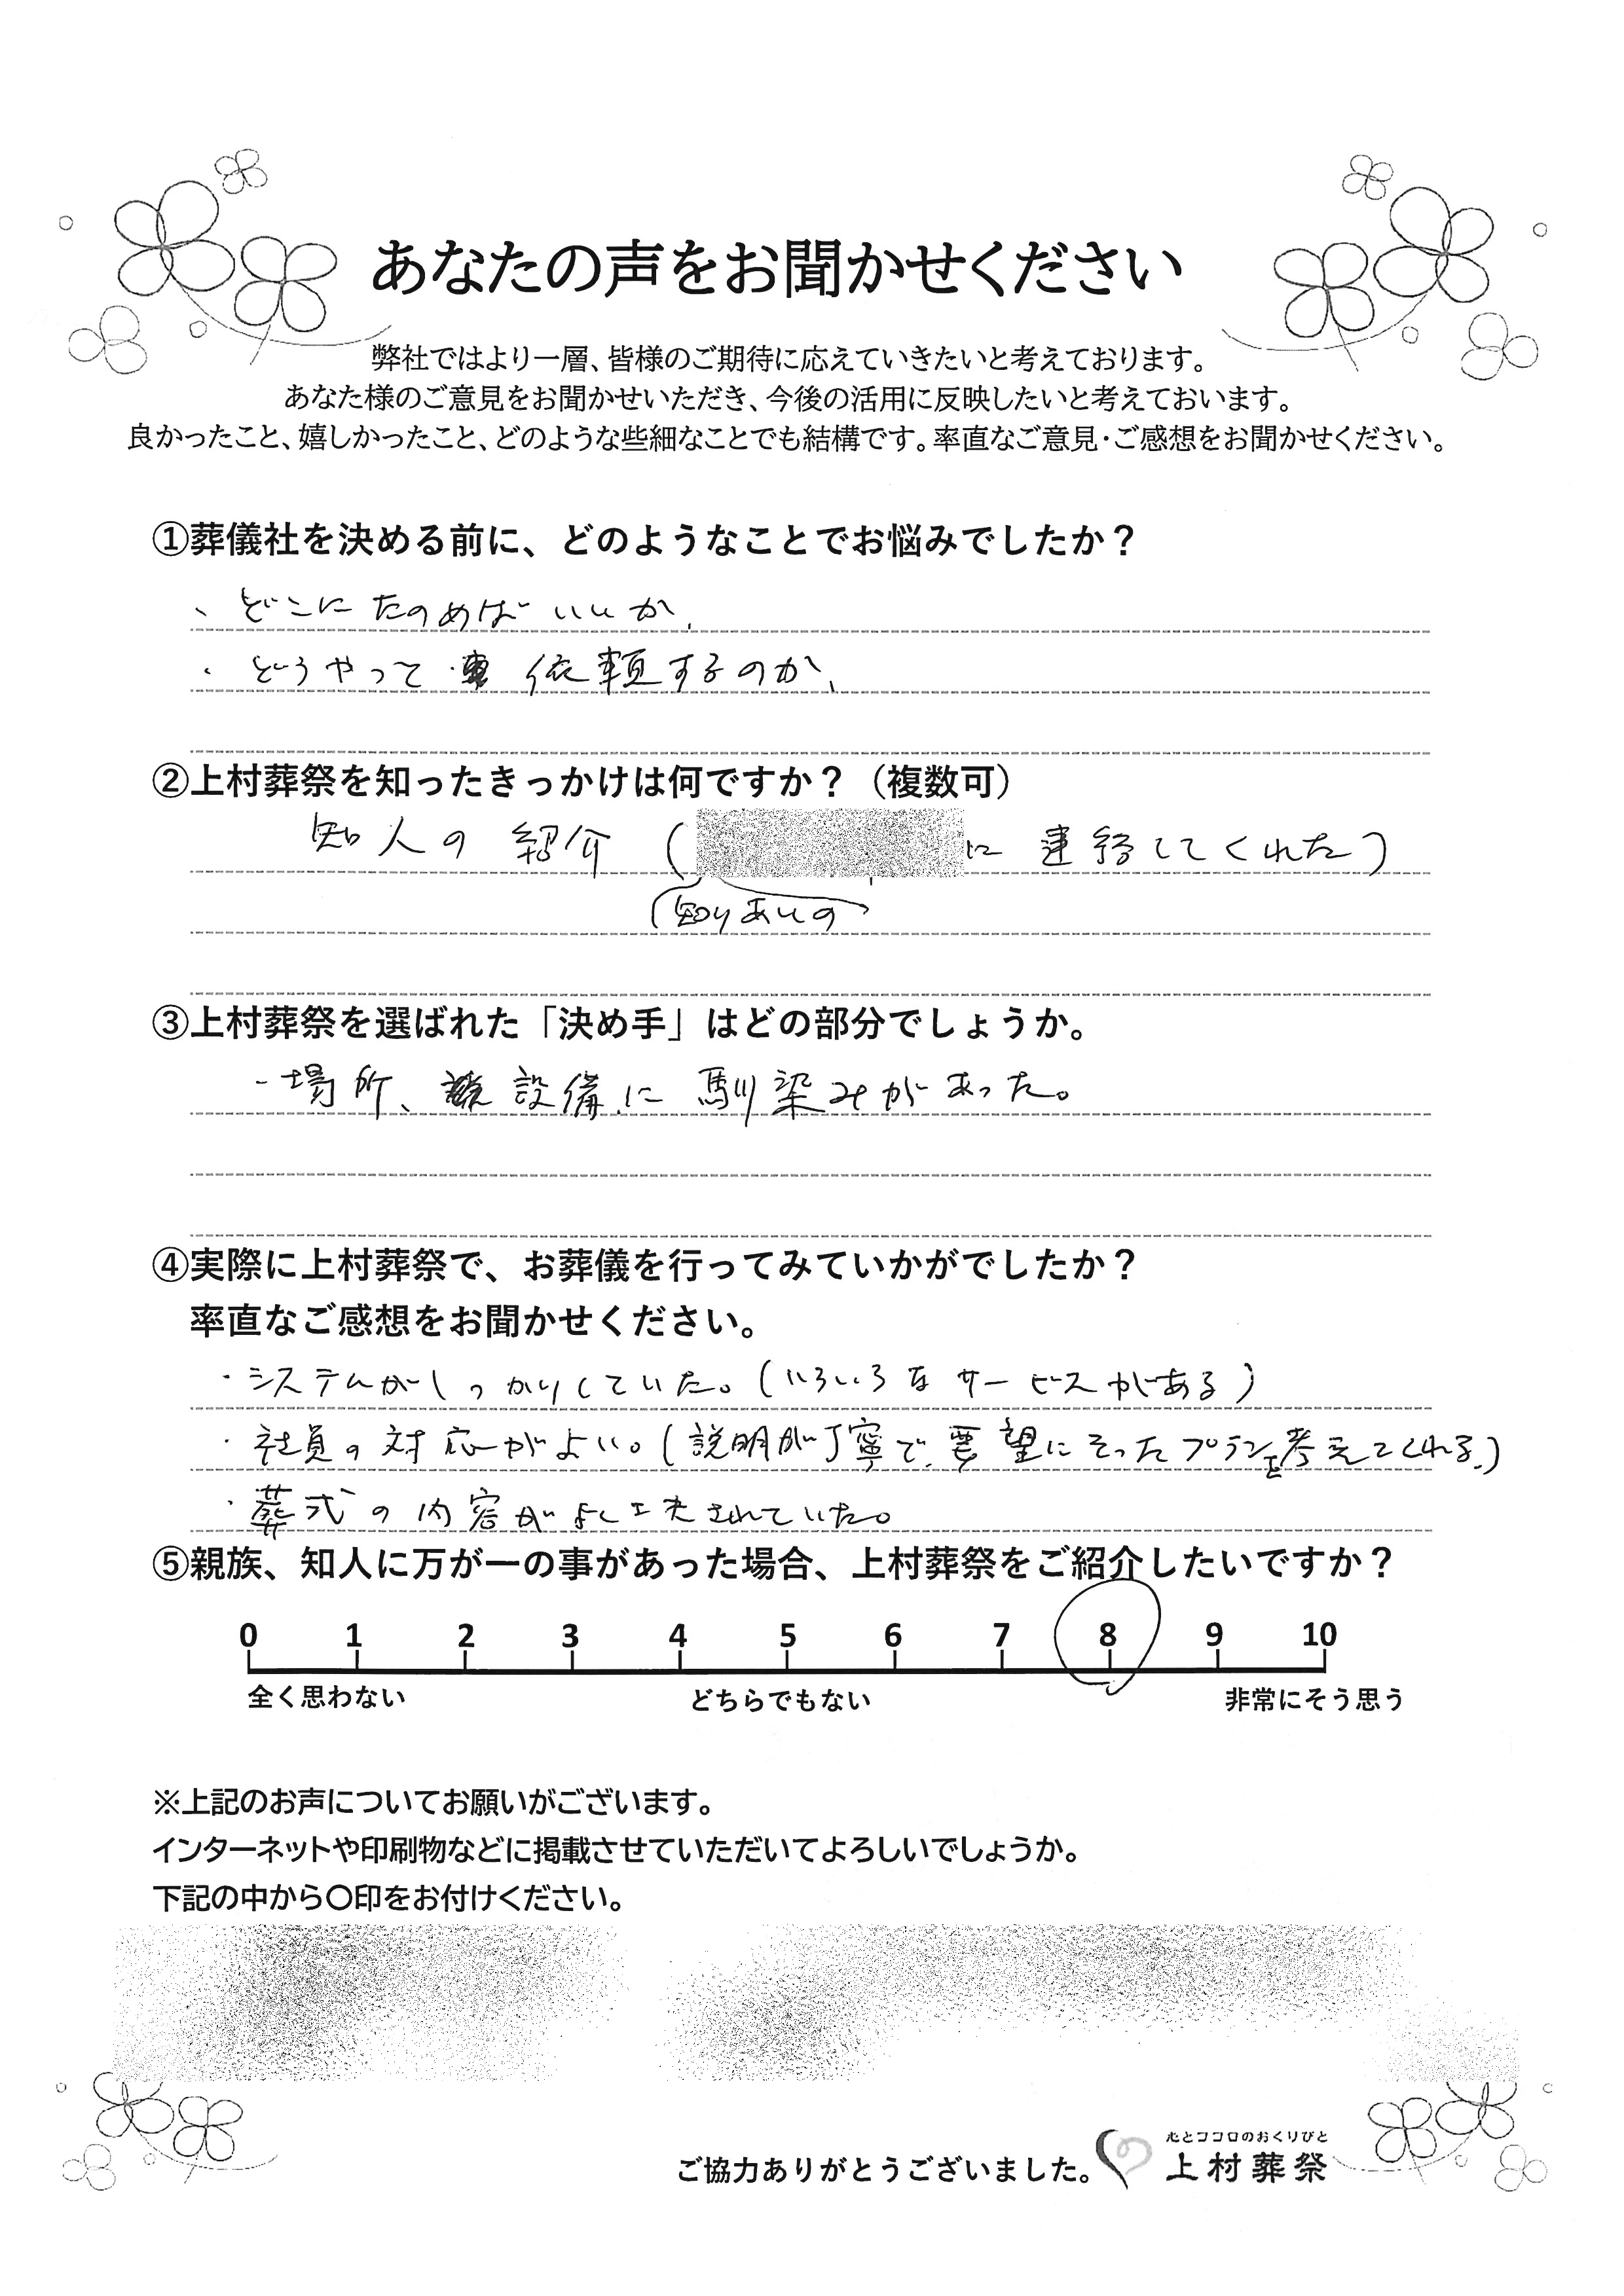 あなたの声をお聞かせください
弊社ではより一層、皆様のご期待に応えていきたいと考えております。
あなた様のご意見をお聞かせいただき、今後の活用に反映したいと考えておいます。
良かったこと、嬉しかったこと、どのような些細なことでも結構です。率直なご意見・ご感想をお聞かせください。
①葬儀社を決める前に、どのようなことでお悩みでしたか？
、どこにたのめばいいか、
・どうやって 依頼するのか、
②上村葬祭を知ったきっかけは何ですか？（複数可）
知人の紹介（ に連絡してくれた）
（知りあいの
③上村葬祭を選ばれた「決め手」はどの部分でしょうか。
・場所、設備に馴染みがあった。
④実際に上村葬祭で、お葬儀を行ってみていかがでしたか？
率直なご感想をお聞かせください。
・システムがしっかりしていた。（いろいろなサービスがある）
・社員の対応がよい。（説明が丁寧で、要望にそったプランを考えてくれる。）
・葬式の内容がよく工夫されていた。
⑤親族、知人に万が一の事があった場合、上村葬祭をご紹介したいですか？
0 1 2 3 4 5 6 7 8 9 10
全く思わない どちらでもない 非常にそう思う
※上記のお声についてお願いがございます。
インターネットや印刷物などに掲載させていただいてよろしいでしょうか。
下記の中から〇印をお付けください。
心とココロのおくりびと
ご協力ありがとうございました。 上村葬祭